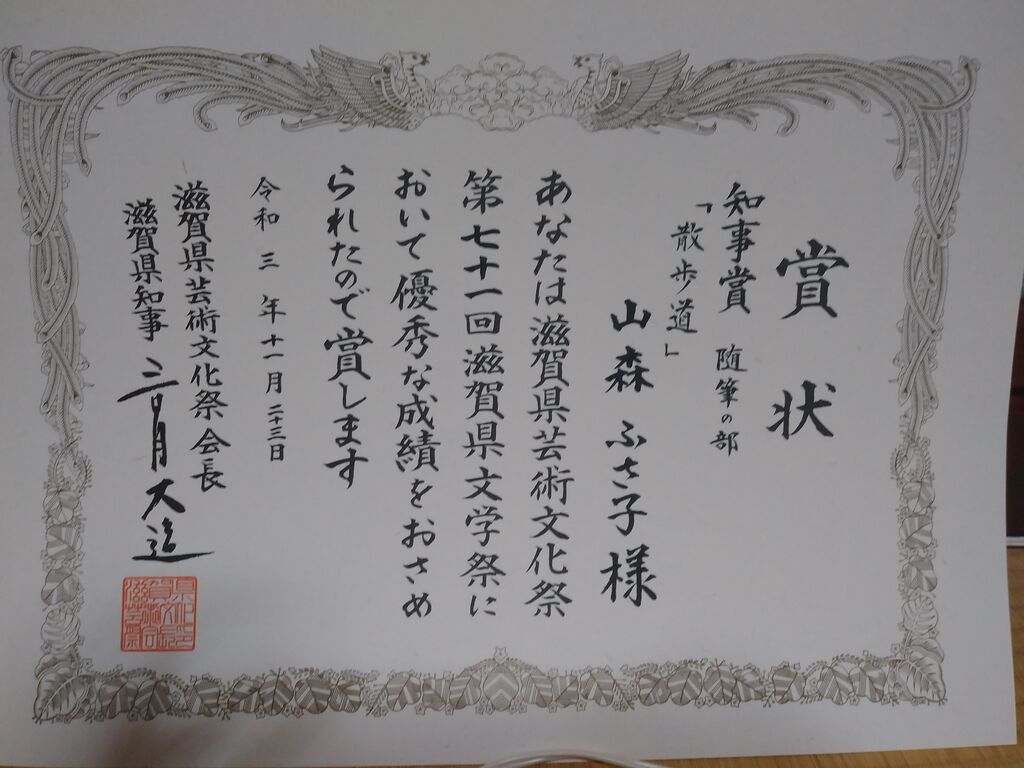 賞状
知事賞 随筆の部
「散歩道」
山森ふさ子様
あなたは滋賀県芸術文化祭
第七十一回滋賀県文学祭に
おいて優秀な成績をおさめ
られたので賞します
令和三年十一月二十三日
滋賀県芸術文化祭会長
滋賀県知事 三日月大造